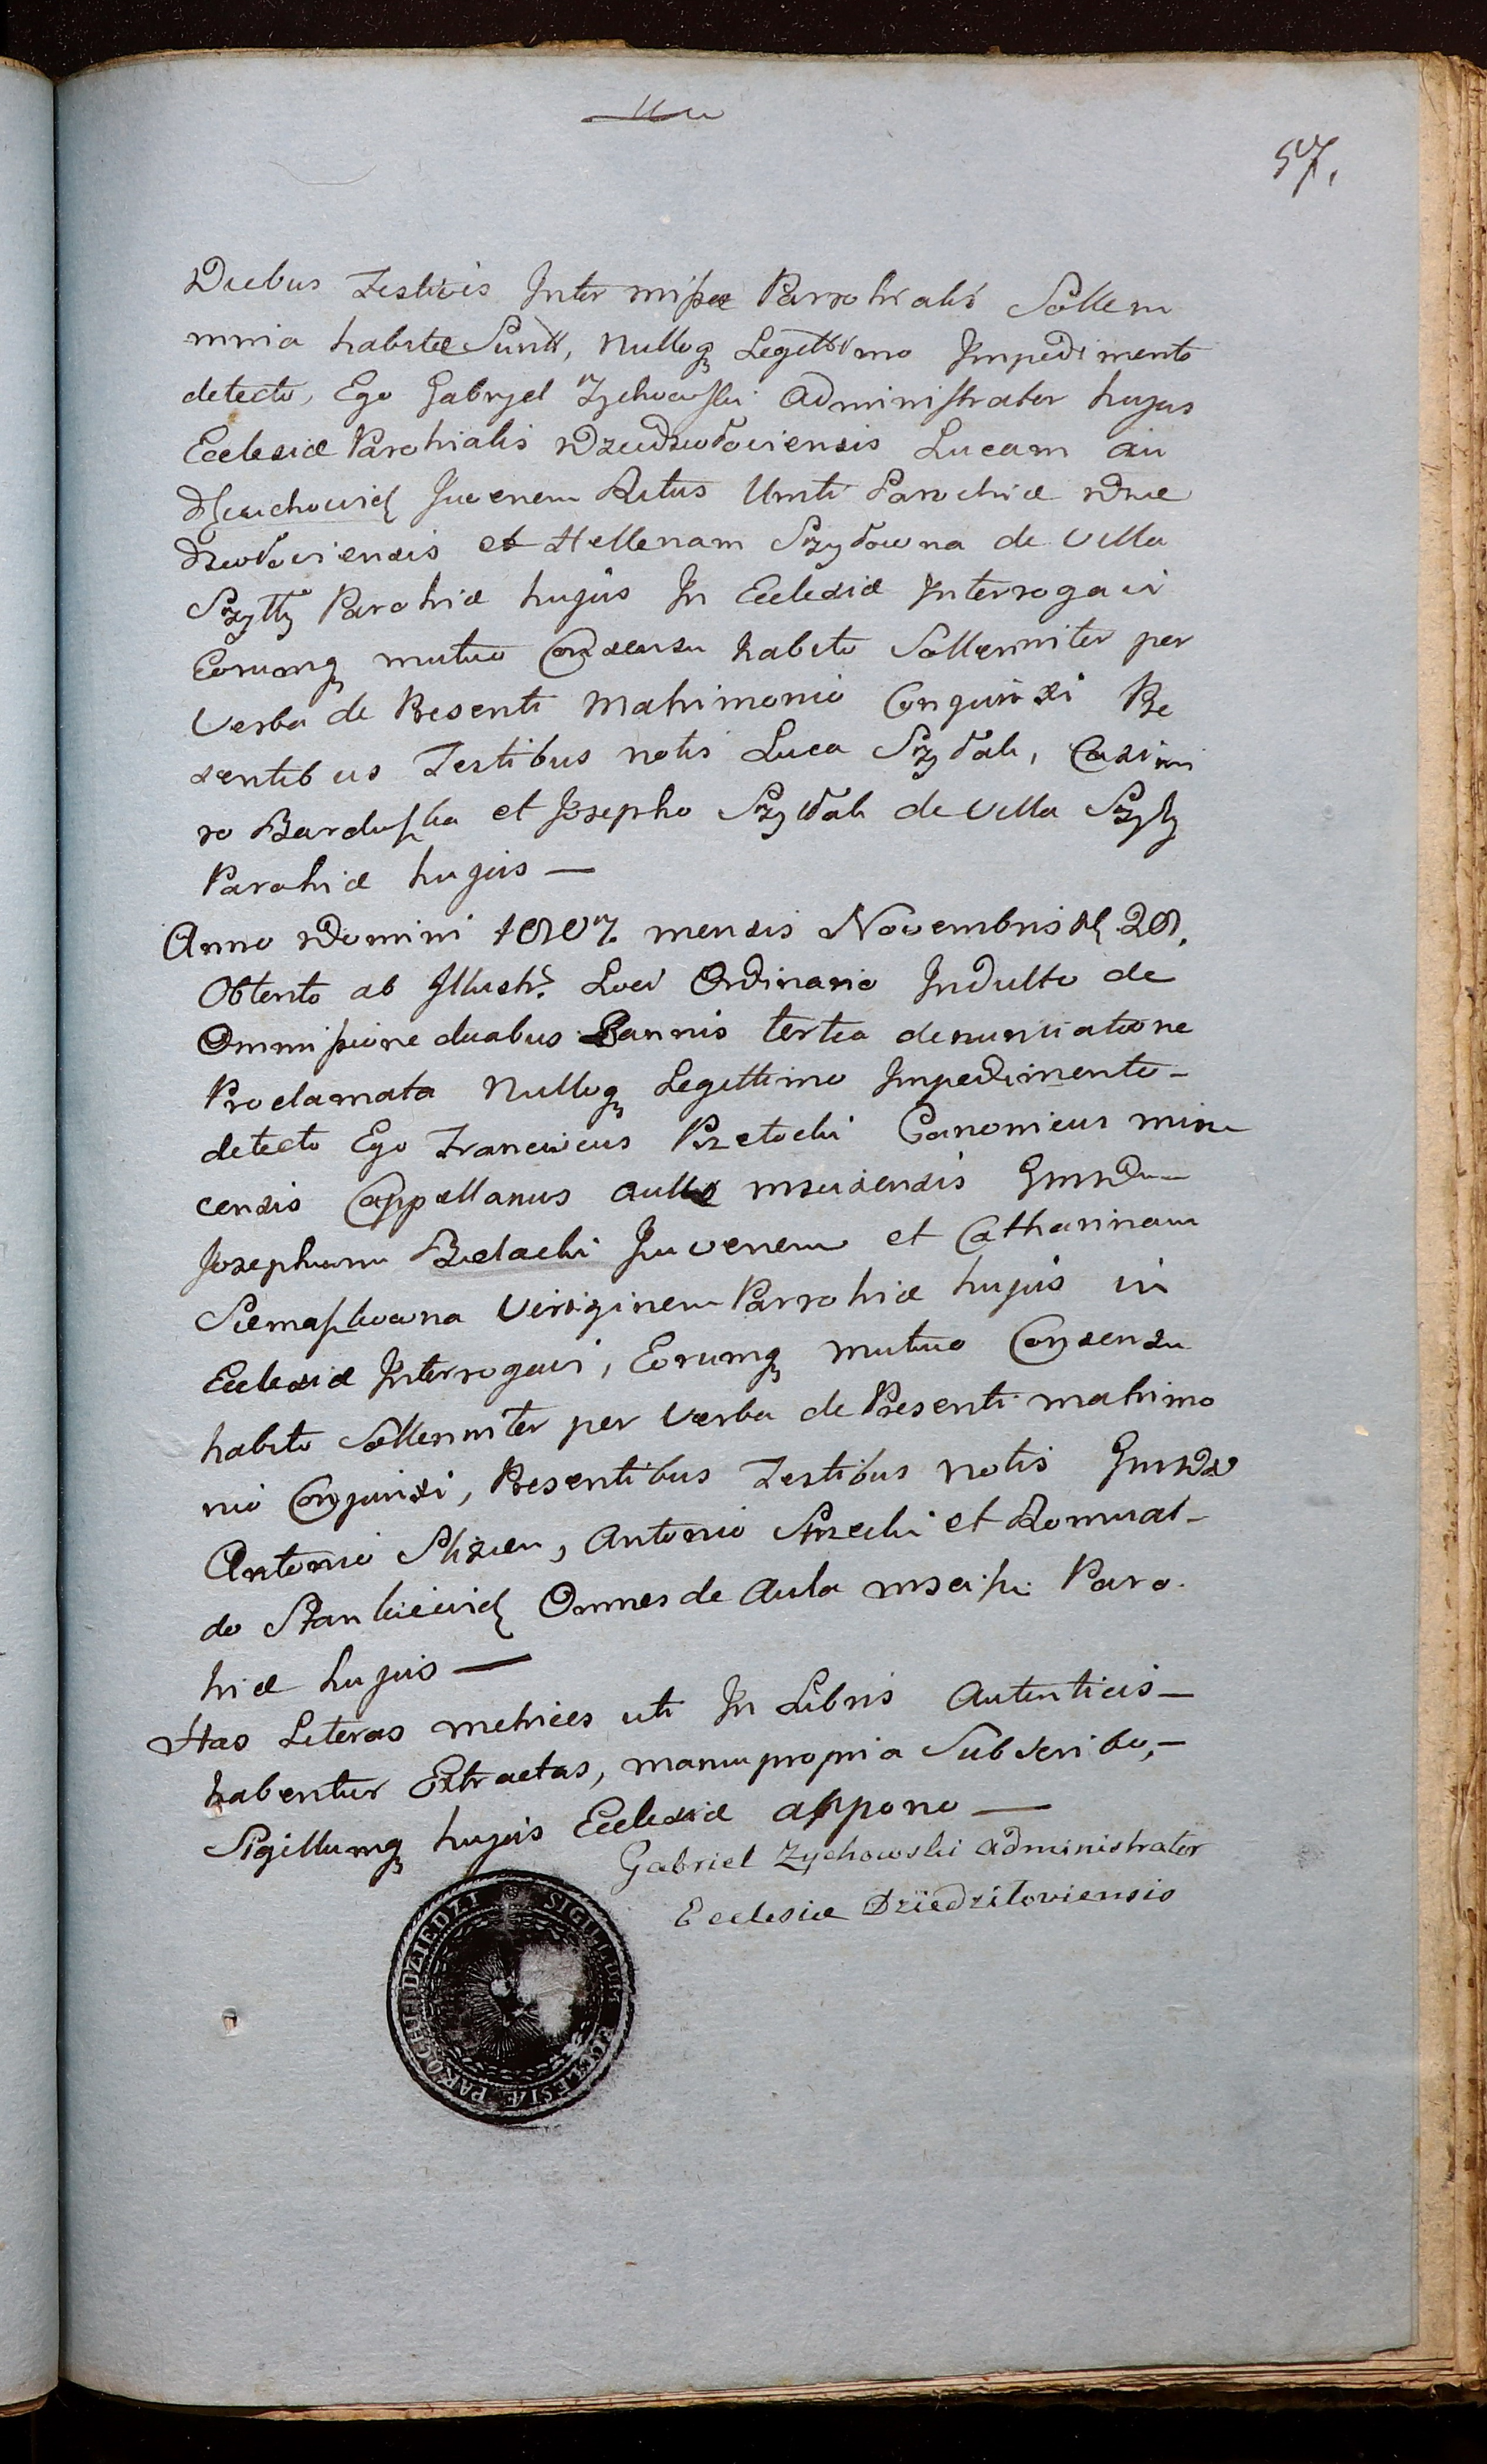 57.
Diebus Festivis Inter missæ Parrohialis Sollem
mnia habitæ Sunt, Nulloq Legittimo Impedimento
detecto, Ego Gabryel Zychowski Administrator hujus
Ecclesiæ Parohialis Dziedziołoviensis Lucam
Juvenem Ritus Uniti Parochiæ Dzie
dziołoviensis et Hellenam Szydłowna de Villa
Szytty Parohiæ hujus In Ecclesiæ Interrogavi
Eorumq mutuo Consensu habito Sollemniter per
Verba de Presenti Matrimonio Conjunxi Pre
sentibus Testibus notis Luca Szydało, Casimi
ro Barduska et Josepho Szydało de Villa Szyty
Parohiæ hujus —
Anno Domini 1807 mensis Novembris 28.
Obtento ab Illustr. Loci Ordinario Indulto de
Ommissione duabus Bannis tertia denuntiatione
Proclamata Nulloq Legittimo Impedimento -
detecto Ego Franciscus Przetocki Canonicus mins
censis Cappellanus Aullæ GmnDm
Josephum Bielacki Juvenem et Catharinam
Siemaszkowna Virginem Parrohiæ hujus in
Ecclesiæ Interrogavi, Eorumq mutuo Consensu
habito Sollemniter per Verba de Presenti matrimo
nio Conjunxi, Presentibus Testibus notis
Antonio Slizien, Antonio et Romual-
do Stankiewicz Omnes de Aula Paro-
hiæ hujus —
Has Literas metrices uti In Libris Autenticis —
habentur Extractas, manu propria Subscribo, —
Sigillumq hujus Ecclesiæ appono —
Gabriel Zychowski Administrator
Ecclesiæ Dziedziłoviensis
SIGILLUM ECCLESIÆ PAROCHI DZIEDZI